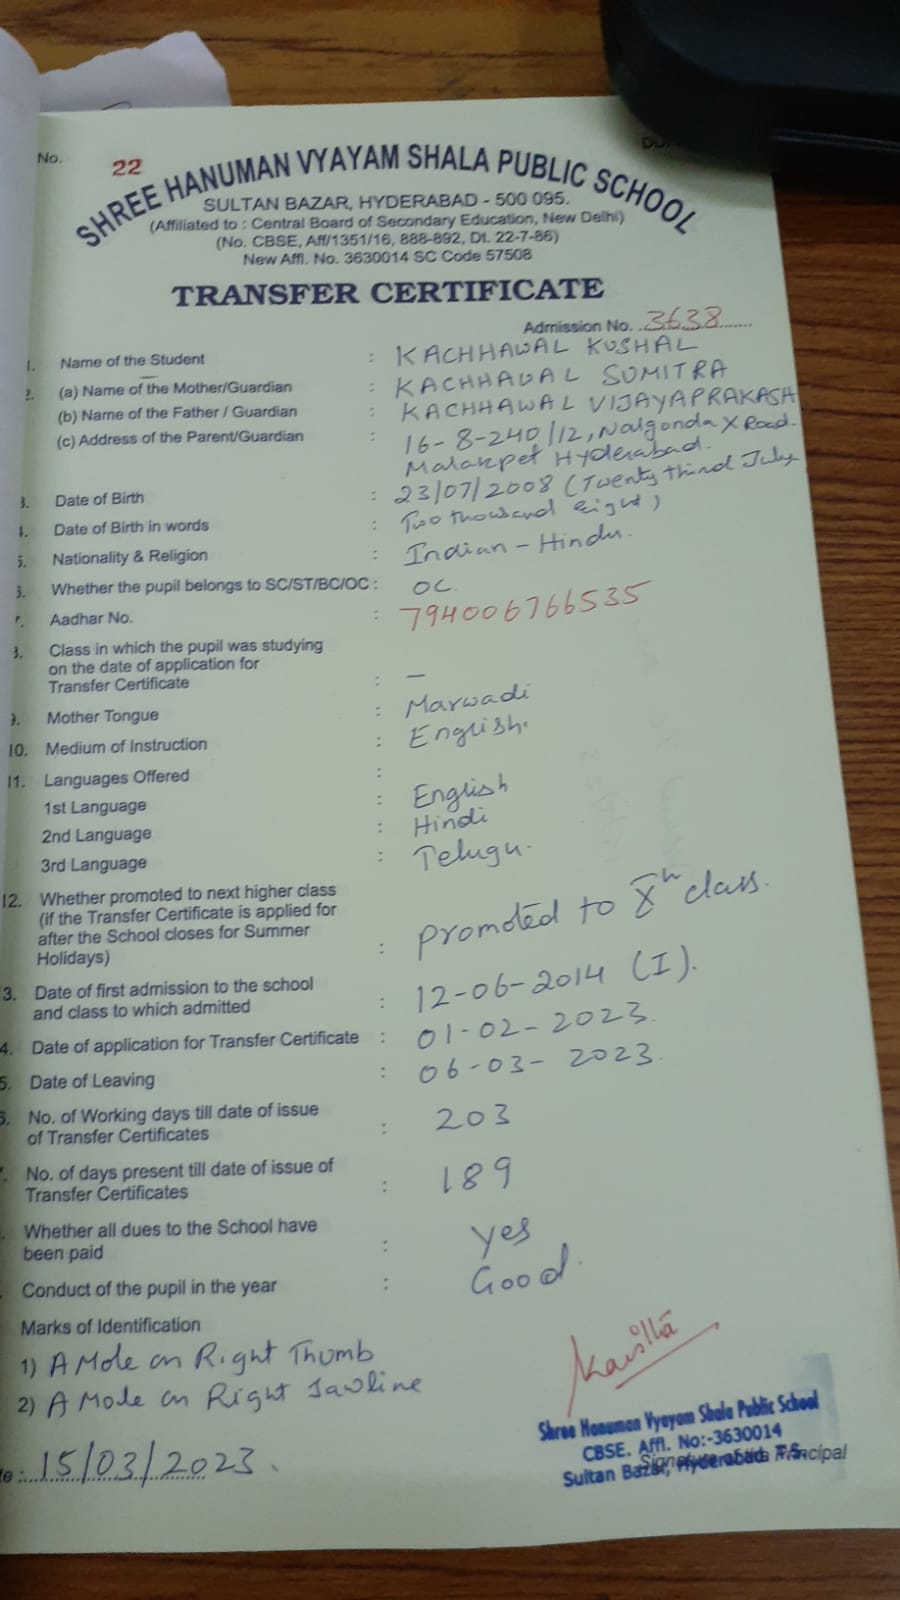 No. 22
SHREE HANUMAN VYAYAM SHALA PUBLIC SCHOOL
SULTAN BAZAR, HYDERABAD - 500 095.
(Affiliated to : Central Board of Secondary Education, New Delhi)
(No. CBSE, Aff/1351/16, 888-892, Dt. 22-7-86)
New Affl. No. 3630014 SC Code 57508
TRANSFER CERTIFICATE
Admission No. 3638
1. Name of the Student : KACHHAWAL KUSHAL
2. (a) Name of the Mother/Guardian : KACHHAWAL SUMITRA
(b) Name of the Father / Guardian : KACHHAWAL VIJAYAPRAKASH
(c) Address of the Parent/Guardian : 16-8-240/12, Nalgonda X Road.
Malakpet Hyderabad.
3. Date of Birth : 23/07/2008 (Twenty third July
4. Date of Birth in words : Two thousand eight)
5. Nationality & Religion : Indian - Hindu.
6. Whether the pupil belongs to SC/ST/BC/OC : OC.
7. Aadhar No. : 794006766535
8. Class in which the pupil was studying
on the date of application for
Transfer Certificate : —
9. Mother Tongue : Marwadi
10. Medium of Instruction : English.
11. Languages Offered :
1st Language : English
2nd Language : Hindi
3rd Language : Telugu.
12. Whether promoted to next higher class
(if the Transfer Certificate is applied for
after the School closes for Summer
Holidays) : promoted to Xth class.
3. Date of first admission to the school
and class to which admitted : 12-06-2014 (I).
4. Date of application for Transfer Certificate : 01-02-2023.
5. Date of Leaving : 06-03-2023.
6. No. of Working days till date of issue
of Transfer Certificates : 203
No. of days present till date of issue of
Transfer Certificates : 189
Whether all dues to the School have
been paid : yes
Conduct of the pupil in the year : Good.
Marks of Identification
1) A Mole on Right Thumb
2) A Mole on Right Jawline
15/03/2023.
Shree Hanuman Vyayam Shala Public School
CBSE. Affl. No:-3630014
Sultan Bazar, Hyderabad. T.S.
Signature of the Principal